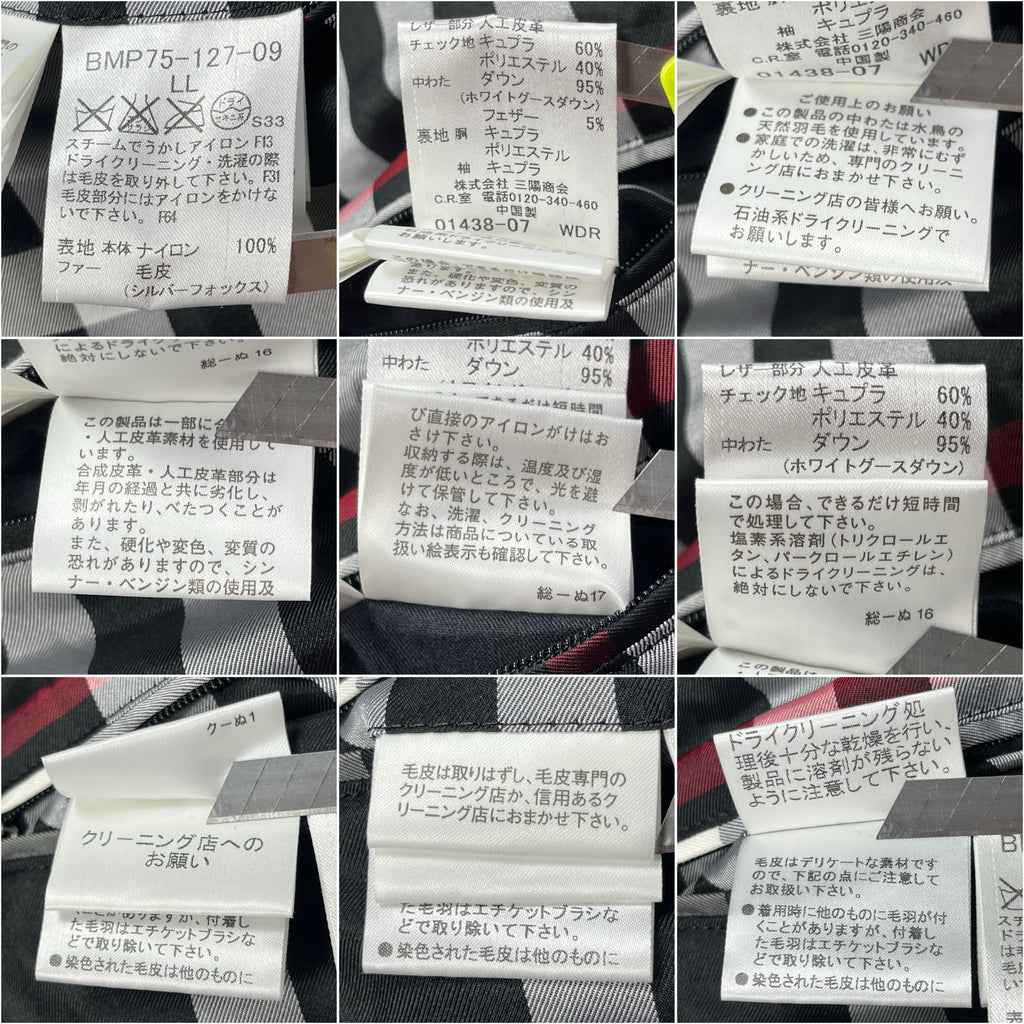 BMP75-127-09
LL
ドライ
セキユ系
S33
スチームでうかしアイロン F13
ドライクリーニング・洗濯の際
は毛皮を取り外して下さい。F31
毛皮部分にはアイロンをかけな
いで下さい。F64
表地 本体 ナイロン 100%
ファー 毛皮
(シルバーフォックス)
レザー部分 人工皮革
チェック地 キュプラ 60%
ポリエステル 40%
中わた ダウン 95%
(ホワイトグースダウン)
フェザー 5%
裏地 胴 キュプラ
ポリエステル
袖 キュプラ
株式会社 三陽商会
C.R.室 電話0120-340-460
中国製
01438-07 WDR
お願いします。
この場合、できるだけ短時間
また、硬化や変色、変質の
恐れがありますので、シン
ナー・ベンジン類の使用及
裏地 胴
ポリエ
袖
株式会社 三陽商会
C.R.室 電話0120-340-460
中国製
01438-07 WDR
ご使用上のお願い
●この製品の中わたは水鳥の
天然羽毛を使用しています。
●家庭での洗濯は、非常にむず
かしいため、専門のクリーニ
ング店におまかせ下さい。
●クリーニング店の皆様へお願い。
石油系ドライクリーニングで
お願いします。
ナー・ベンジン類の使用及
によるドライクリーニングは、
絶対にしないで下さい。
総一ぬ 16
この製品は一部に合
・人工皮革素材を使用して
います。
合成皮革・人工皮革部分は
年月の経過と共に劣化し、
剥がれたり、べたつくことが
あります。
また、硬化や変色、変質の
恐れがありますので、シン
ナー・ベンジン類の使用及
ポリエステル 40%
中わた ダウン 95%
できるだけ短時間
び直接のアイロンがけはお
さけ下さい。
収納する際は、温度及び湿
度が低いところで、光を避
けて保管して下さい。
なお、洗濯、クリーニング
方法は商品についている取
扱い絵表示も確認して下さい。
総一ぬ17
レザー部分 人工皮革
チェック地 キュプラ 60%
ポリエステル 40%
中わた ダウン 95%
(ホワイトグースダウン)
この場合、できるだけ短時間
で処理して下さい。
塩素系溶剤(トリクロールエ
タン、パークロールエチレン)
によるドライクリーニングは、
絶対にしないで下さい。
総一ぬ 16
この製品は
クーぬ1
クリーニング店への
お願い
くことがありますが、付着し
た毛羽はエチケットブラシな
どで取り除いて下さい。
●染色された毛皮は他のものに
毛皮は取りはずし、毛皮専門の
クリーニング店か、信用あるク
リーニング店におまかせ下さい。
た毛羽はエチケットブラシな
どで取り除いて下さい。
●染色された毛皮は他のものに
ドライクリーニング処
理後十分な乾燥を行い、
製品に溶剤が残らない
ように注意して下さい。
毛皮はデリケートな素材です
ので、下記の点にご注意して
お取扱い下さい。
●着用時に他のものに毛羽が付
くことがありますが、付着し
た毛羽はエチケットブラシな
どで取り除いて下さい。
●染色された毛皮は他のものに